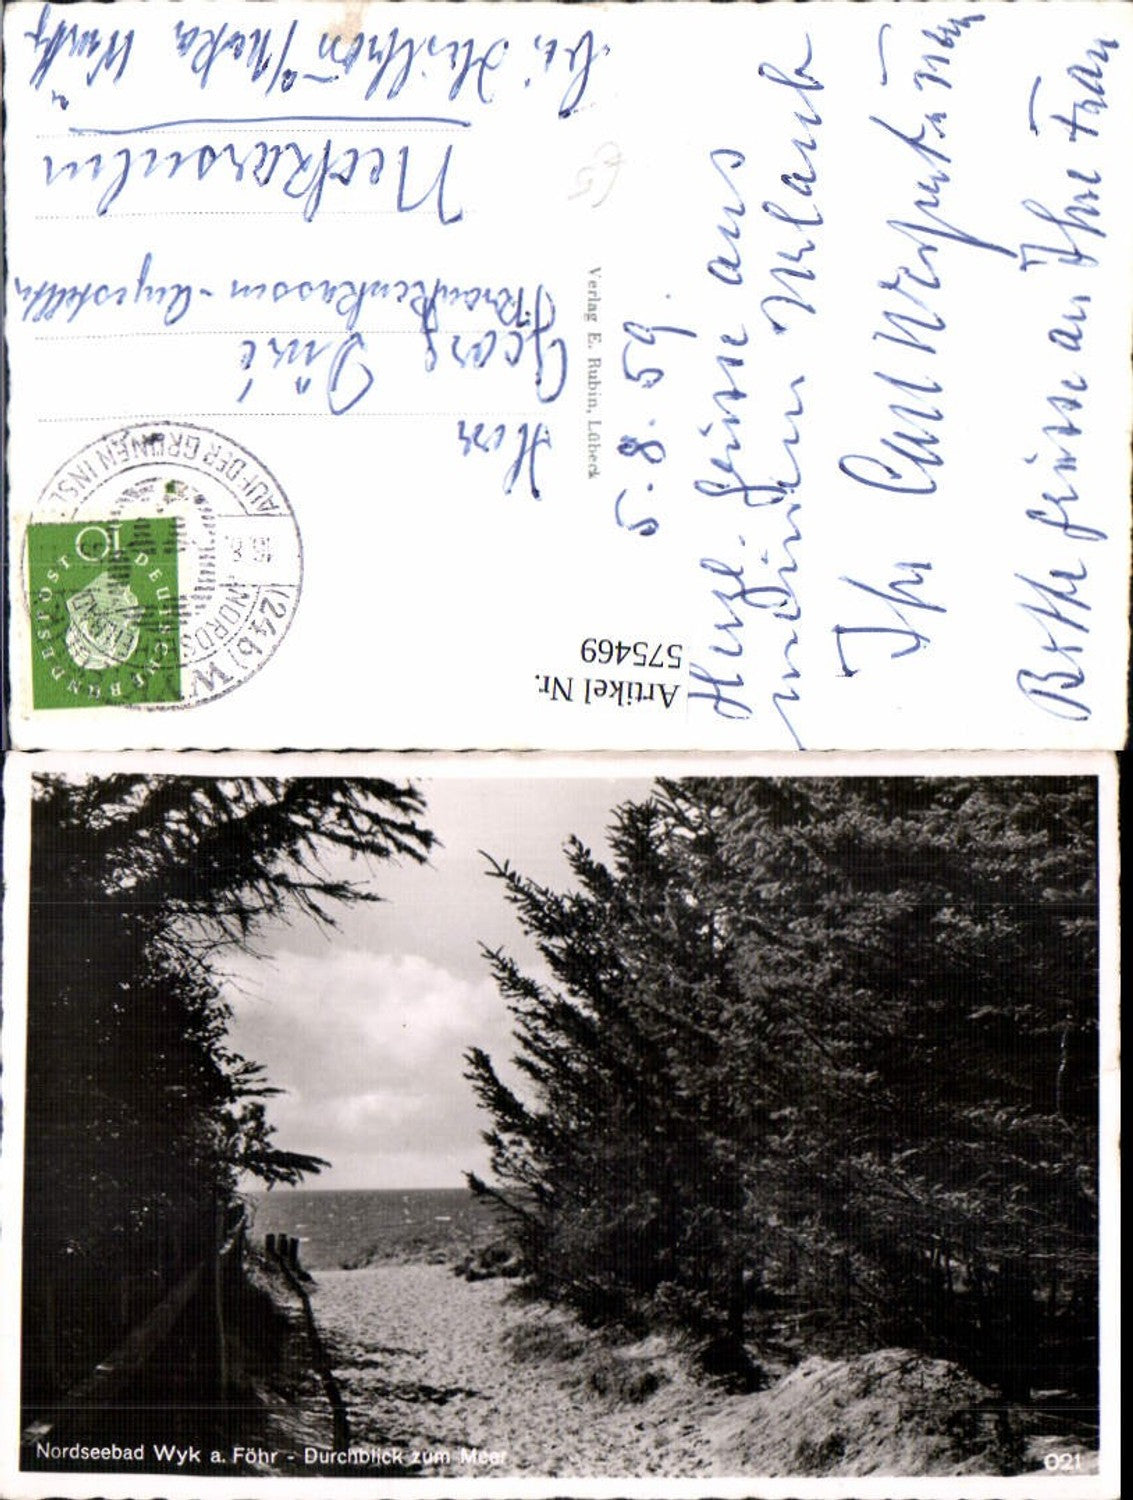 5. 8. 59.
Herzl. Grüsse aus
meinem Urlaub
Ihr Carl
Bitte Grüsse an Ihre Frau
Herr
Georg
Krankenkassen-Angestellter
Neckarsulm
bei Heilbron a/Neckar Württ
Verlag E. Rubin, Lübeck
DEUTSCHE BUNDESPOST
10
(24b) WYK
NORDSEE
AUF DER GRÜNEN INSEL
Artikel Nr.
575469
Nordseebad Wyk a. Föhr - Durchblick zum Meer
021